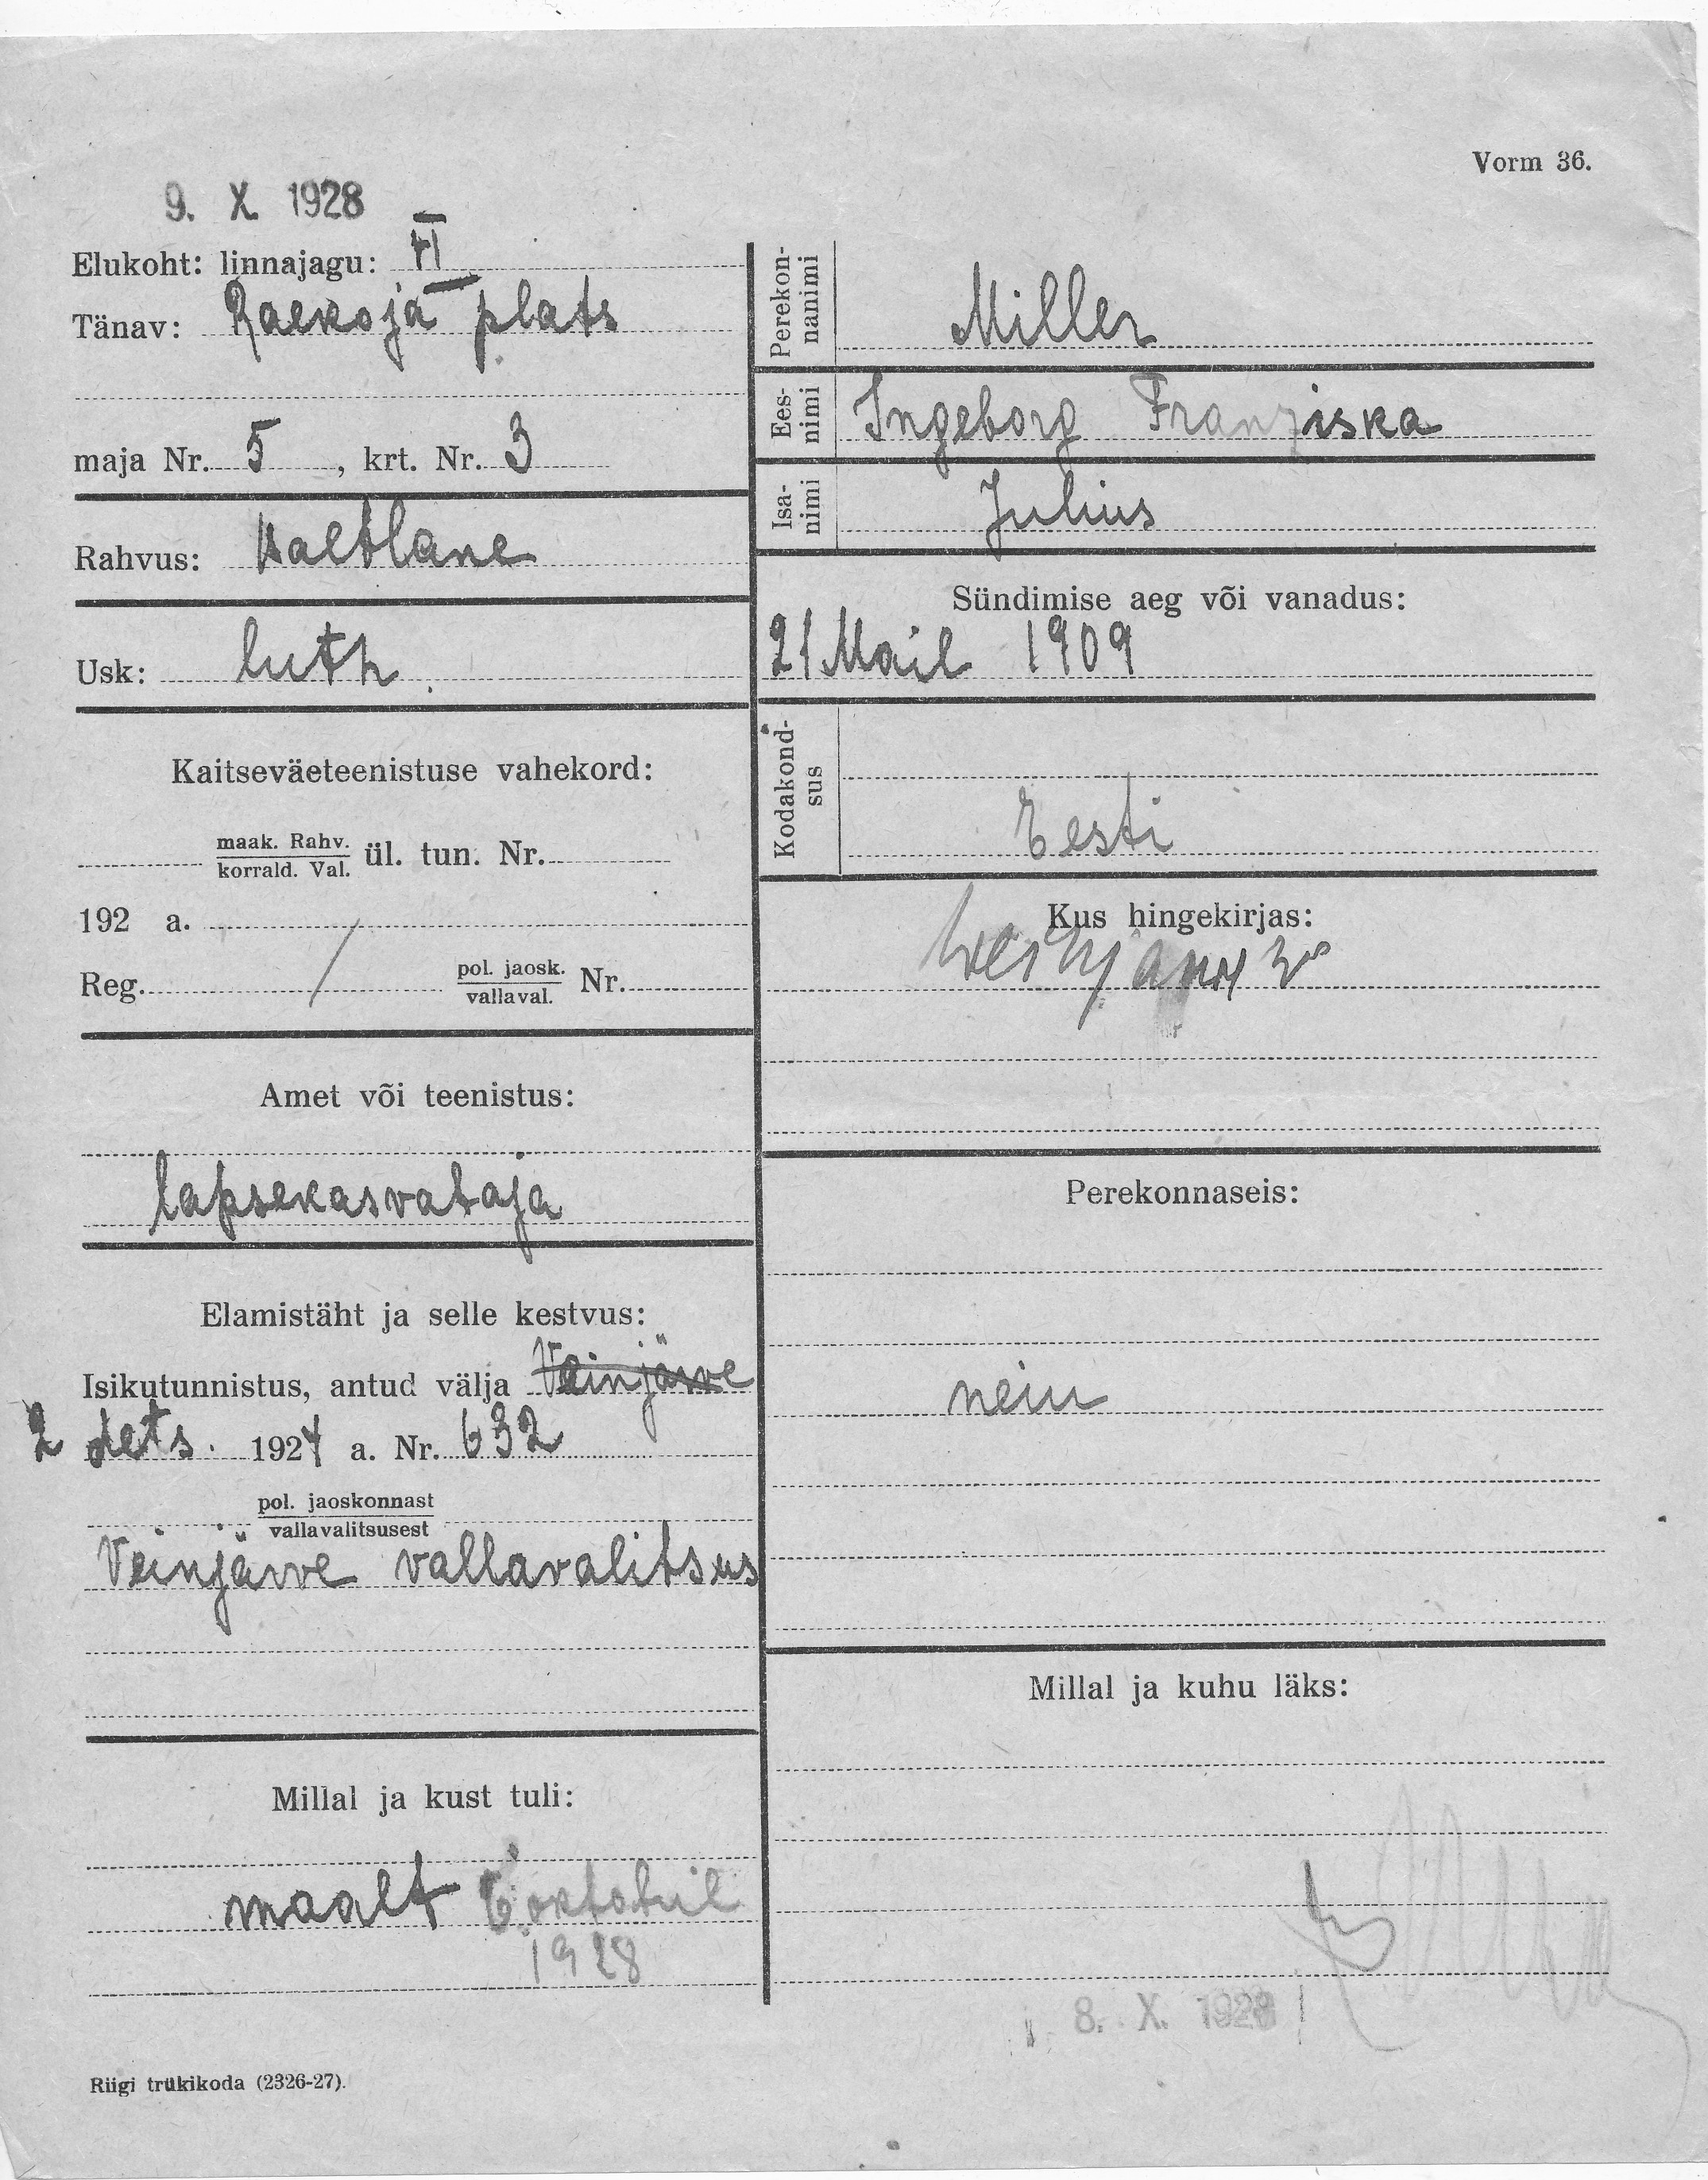 Vorm 36.
9. X 1928
Elukoht: linnajagu: VI
Tänav: Raekoja plats
maja Nr. 5, krt. Nr. 3
Rahvus:
Usk: luth.
Kaitseväeteenistuse vahekord:
maak. Rahv.
korrald. Val. ül. tun. Nr.
192 a.
Reg. / pol. jaosk.
vallaval. Nr.
Amet või teenistus:
lapsekasvataja
Elamistäht ja selle kestvus:
Isikutunnistus, antud välja Veinjärve
2 dets. 1924 a. Nr. 632
pol. jaoskonnast
vallavalitsusest
Veinjärve vallavalitsus
Millal ja kust tuli:
maalt 6. oktobril
1928
Riigi trükikoda (2326-27).
Perekonnanimi
Miller
Eesnimi
Ingeborg Franziska
Isanimi
Julius
Sündimise aeg või vanadus:
21 Mail 1909
Kodakondsus
Eesti
Kus hingekirjas:
Perekonnaseis:
neiu
Millal ja kuhu läks:
8. X. 1928